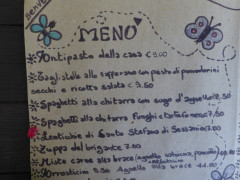 BENVE
MENÙ
Antipasto della casa € 9.00
Tagliatelle allo zafferano con pesto di pomodorini
secchi e ricotta salata € 9.50
Spaghetti alla chitarra con sugo d'agnello 9.50
Spaghetti alla chitarra funghi e tartufo
Lenticchie di Santo Stefano di Sessanio
Zuppa del brigante 7.00
Misto carne alla brace (agnello, salsiccia, pancetta)
Arrosticini 9.50 agnello alla brace